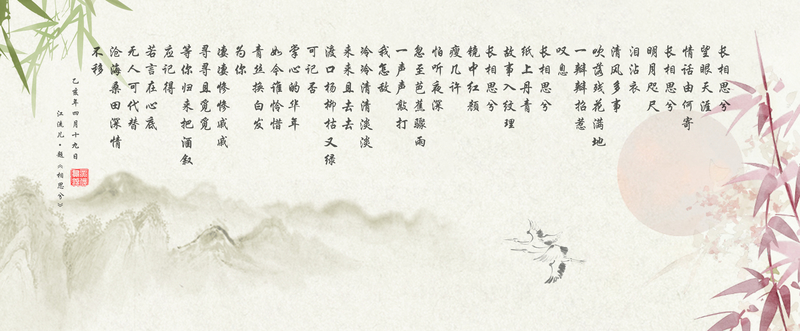 长相思兮
望眼天涯
情话由何寄
长相思兮
明月咫尺
泪沾衣
清风多事
吹落残花满地
一瓣瓣拾惹
叹息
长相思兮
纸上丹青
故事入纹理
长相思兮
镜中红颜
瘦几许
怕听夜深
忽至芭蕉骤雨
一声声敲打
我怎敌
冷冷清清淡淡
来来且去去
渡口杨柳枯又绿
可记否
掌心的华年
如今谁怜惜
青丝换白发
为你
凄凄惨惨戚戚
寻寻且觅觅
等你归来把酒叙
应记得
若言在心底
无人可代替
沧海桑田深情
不移
乙亥年四月十九日
江流儿·题《相思兮》